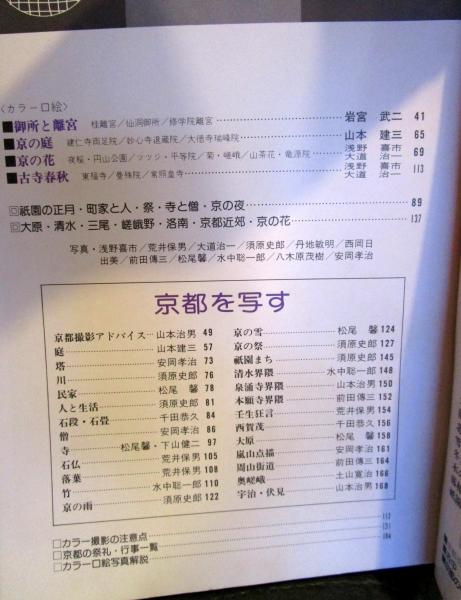 〈カラー口絵〉
■御所と離宮 桂離宮／仙洞御所／修学院離宮 岩宮 武二 41
■京の庭 建仁寺両足院／妙心寺退蔵院／大徳寺瑞峰院 山本 建三 65
■京の花 夜桜・円山公園／ツツジ・平等院／菊・嵯峨／山茶花・竜源院 浅野 喜市 大道 治一 69
■古寺春秋 東福寺／曼殊院／常照皇寺 浅野 喜市 大道 治一 113
□祇園の正月・町家と人・祭・寺と僧・京の夜 89
□大原・清水・三尾・嵯峨野・洛南・京都近郊・京の花 137
写真・浅野喜市／荒井保男／大道治一／須原史郎／丹地敏明／西岡日
出美／前田傳三／松尾馨／水中聡一郎／八木原茂樹／安岡孝治
京都を写す
京都撮影アドバイス 山本治男 49
庭 山本建三 57
塔 安岡孝治 73
川 須原史郎 76
民家 松尾 馨 78
人と生活 須原史郎 81
石段・石畳 千田恭久 84
僧 安岡孝治 86
寺 松尾馨・下山健二 97
石仏 荒井保男 105
落葉 荒井保男 108
竹 水中聡一郎 110
京の雨 須原史郎 122
京の雪 松尾 馨 124
京の祭 須原史郎 127
祇園まち 須原史郎 145
清水界隈 水中聡一郎 148
泉涌寺界隈 山本治男 150
本願寺界隈 前田傳三 152
壬生狂言 荒井保男 154
西賀茂 千田恭久 156
大原 松尾 馨 158
嵐山点描 安岡孝治 161
周山街道 前田傳三 164
奥嵯峨 土山寛治 166
宇治・伏見 山本治男 168
□カラー撮影の注意点 112
□京都の祭礼・行事一覧 131
□カラー口絵写真解説 184